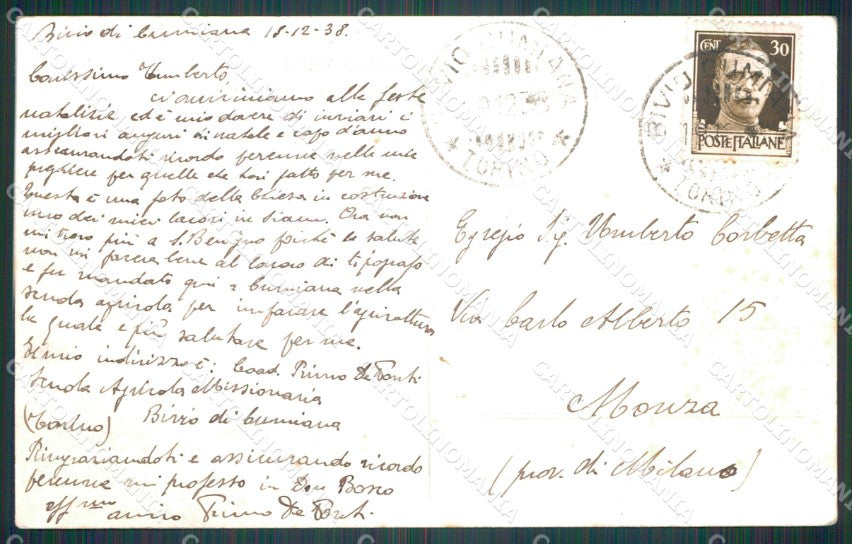 Bivio di Cumiana 18-12-38.
Carissimo Umberto
ci avviciniamo alle feste
natalizie ed è mio dovere di inviarti i
migliori auguri di natale e capo d'anno
assicurandoti ricordo fervente nelle mie
preghiere per quelle che hai fatto per me.
Questa è una foto della Chiesa in costruzione
uno dei miei lavori in Siam. Ora non
mi trovo più a S. Benigno poichè la salute
non mi faceva bene al lavoro di tipografo
e fui mandato qui a Cumiana nella
scuola agricola per imparare l'agricoltura
la quale è più salutare per me.
Il mio indirizzo è: Coad. Primo De Ponti
Scuola Agricola Missionaria
(Torino) Bivio di Cumiana
Ringraziandoti e assicurando ricordo
fervente mi professo in Don Bosco
aff.mo amico Primo De Ponti.
BIVIO CUMIANA
* TORINO *
CENT 30
POSTE ITALIANE
BIVIO CUMIANA
* TORINO
Egregio Sig. Umberto Corbetta
Via Carlo Alberto 15
Monza
(prov. di Milano)
CARTOLINOMANIA